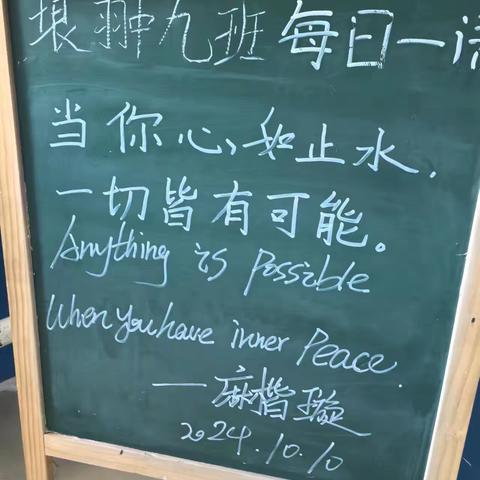 垠翀九班 每日一语
当你心如止水,
一切皆有可能。
Anything is Possible
When you have inner Peace
—麻楷璇
2024.10.10